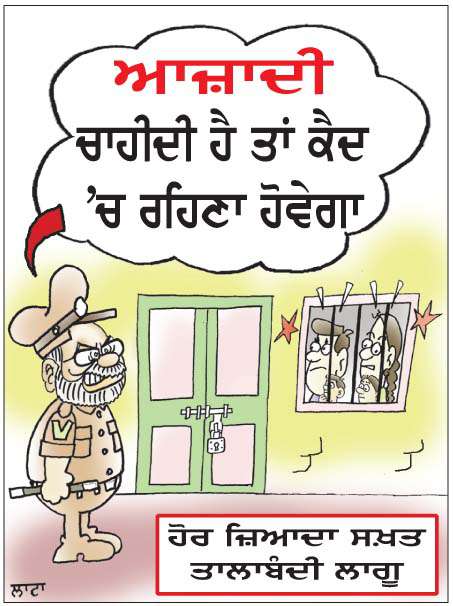 ਆਜ਼ਾਦੀ
ਚਾਹੀਦੀ ਹੈ ਤਾਂ ਕੈਦ
’ਚ ਰਹਿਣਾ ਹੋਵੇਗਾ
ਹੋਰ ਜ਼ਿਆਦਾ ਸਖ਼ਤ
ਤਾਲਾਬੰਦੀ ਲਾਗੂ
ਲਾਟਾ